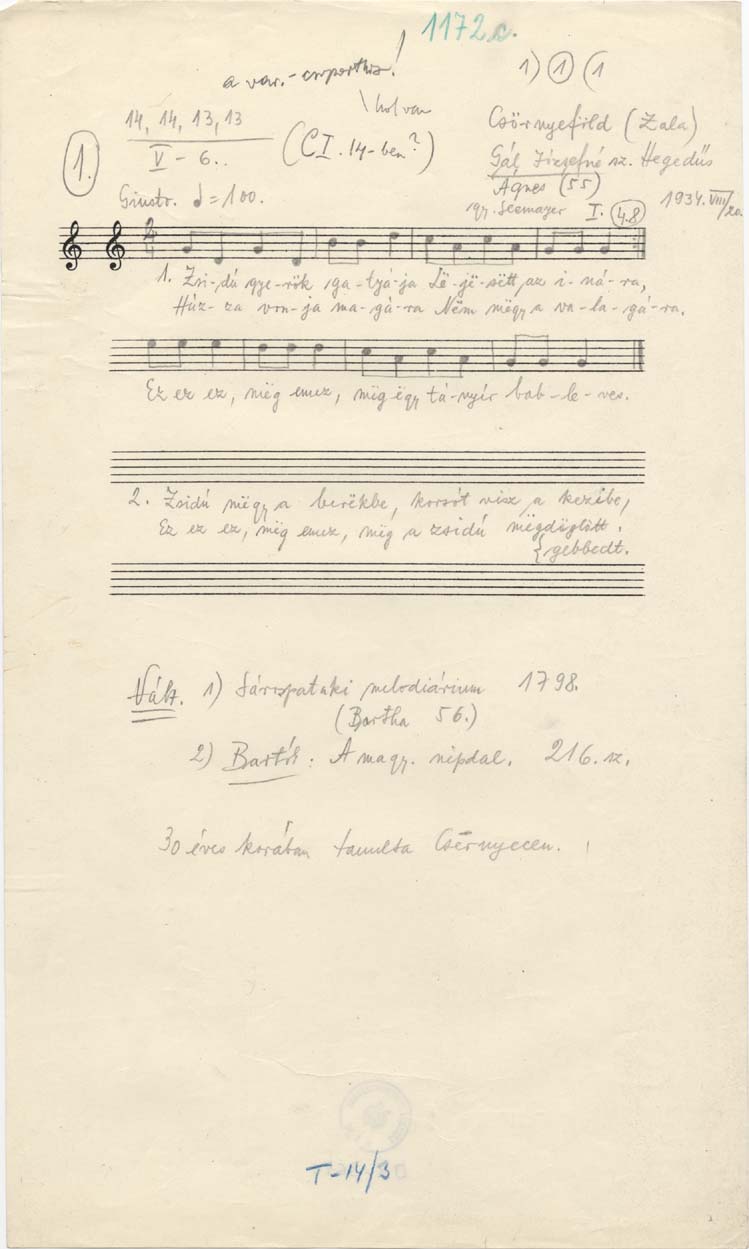 1172c.
a var.-csoporthoz!
hol van
1) 1 (1
14, 14, 13, 13
V – 6..
(CI. 14-ben?)
Csörnyeföld (Zala)
1.
Gál Józsefné sz. Hegedüs
Ágnes (55)
Giusto. = 100.
gy. Seemayer I. 4.8 1934. VIII/20.
2 4
1. Zsi-dú gye-rök ga-tyá-ja Lë-jë-sëtt az i-ná-ra,
Húz-za von-ja ma-gá-ra Nëm mëgy a va-la-gá-ra.
Ez ez ez, mëg emez, mëg ëgy tá-nyír bab-le-ves.
2. Zsidú mëgy a berëkbe, korsót visz a kezibe,
Ez ez ez, mëg emez, mëg a zsidú mëgdöglött.
gebbedt.
Vált. 1) Sárospataki melodiárium 1798.
(Bartha 56.)
2) Bartók: A magy. népdal. 216. sz.
30 éves korában tanulta Csërnyecen.
T-14/3